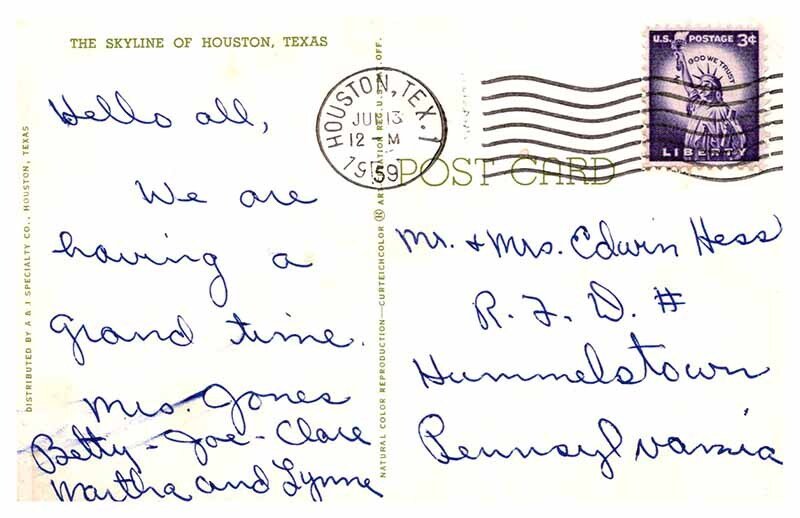 THE SKYLINE OF HOUSTON, TEXAS
Hello all,
We are
having a
grand time.
Mrs. Jones
Betty - Joe - Clare
Martha and Lynne
DISTRIBUTED BY A & J SPECIALTY CO., HOUSTON, TEXAS
NATURAL COLOR REPRODUCTION—CURTEICHCOLOR ® ART REG. U.S. OFF.
HOUSTON, TEX. 1
JU 13
12 M
1959
U.S. POSTAGE 3¢
IN GOD WE TRUST
LIBERTY
POST CARD
Mr. & Mrs. Edwin Hess
R. F. D. #
Hummelstown
Pennsylvania